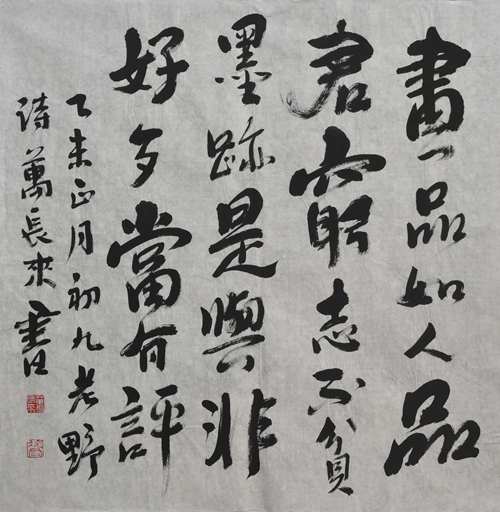 畫品如人品
君窮志不貧
墨跡是與非
好歹當有評
乙未正月初九老野
詩萬長來書